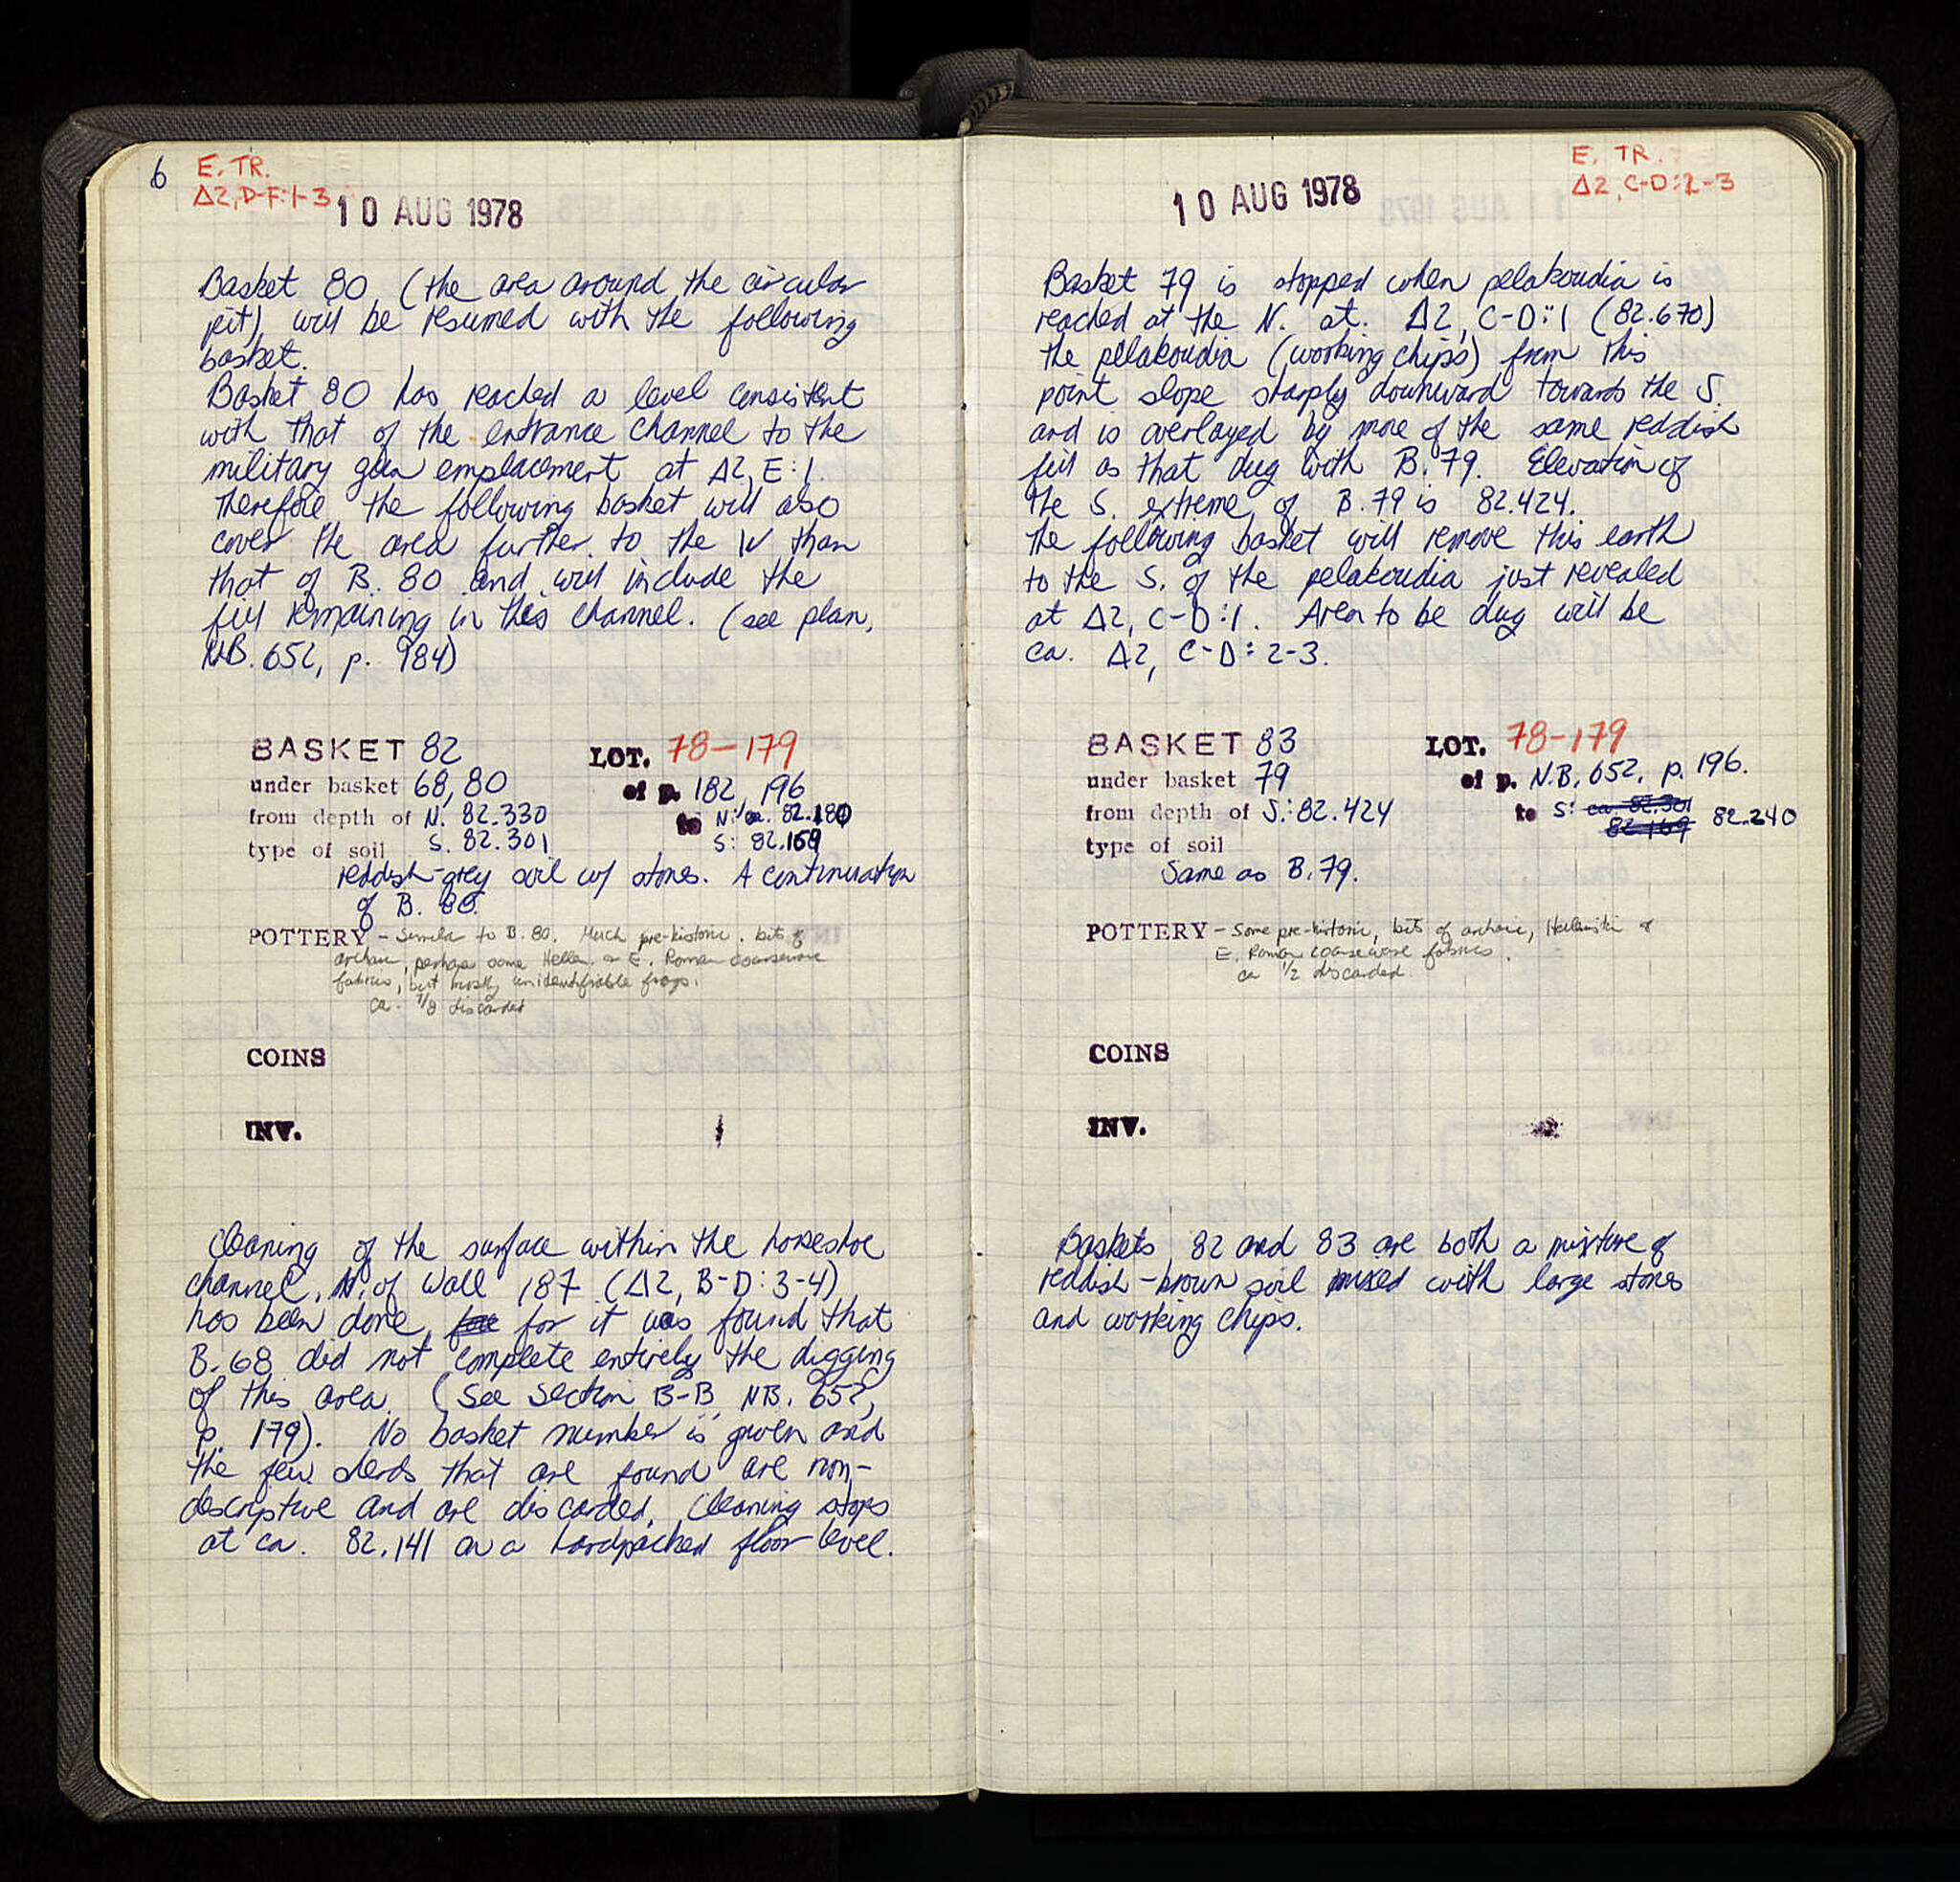 6
E. TR.
Δ2, D-F:1-3
10 AUG 1978
Basket 80 (the area around the circular
pit) will be resumed with the following
basket.
Basket 80 has reached a level consistent
with that of the entrance channel to the
military gun emplacement at Δ2, E:1.
Therefore the following basket will also
cover the area further to the W than
that of B. 80 and will include the
fill remaining in this channel. (see plan,
NB. 652, p. 984)
BASKET 82
LOT. 78-179
under basket 68, 80
of p. 182, 196
from depth of N. 82.330
S. 82.301
to N: ca. 82.180
S: 82.159
type of soil
reddish-grey soil w/ stones. A continuation
of B. 80.
POTTERY - Similar to B. 80. Much pre-historic. bits of
archaic, perhaps some Hellen. or E. Roman coarseware
fabrics, but mostly unidentifiable frags.
ca. 7/8 discarded
COINS
INV.
Cleaning of the surface within the horseshoe
channel, N. of Wall 187 (Δ2, B-D:3-4)
has been done, for it was found that
B. 68 did not complete entirely the digging
of this area. (See section B-B, NB. 652,
p. 179). No basket number is given and
the few sherds that are found are non-
descriptive and are discarded. Cleaning stops
at ca. 82.141 on a hardpacked floor level.
E. TR.
Δ2, C-D:2-3
10 AUG 1978
Basket 79 is stopped when pelakoudia is
reached at the N. at. Δ2, C-D:1 (82.670)
The pelakoudia (working chips) from this
point slope sharply downward towards the S.
and is overlayed by more of the same reddish
fill as that dug with B. 79. Elevation of
the S. extreme of B. 79 is 82.424.
The following basket will remove this earth
to the S. of the pelakoudia just revealed
at Δ2, C-D:1. Area to be dug will be
ca. Δ2, C-D:2-3.
BASKET 83
LOT. 78-179
under basket 79
of p. N.B. 652, p. 196.
from depth of S.:82.424
to S: ca 82.301
82.169 82.240
type of soil
Same as B. 79.
POTTERY - Some pre-historic, bits of archaic, Hellenistic or
E. Roman coarseware fabrics.
ca 1/2 discarded.
COINS
INV.
Baskets 82 and 83 are both a mixture of
reddish-brown soil mixed with large stones
and working chips.